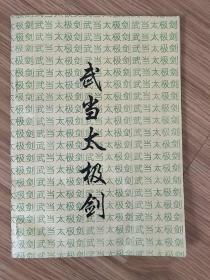 武当太极剑